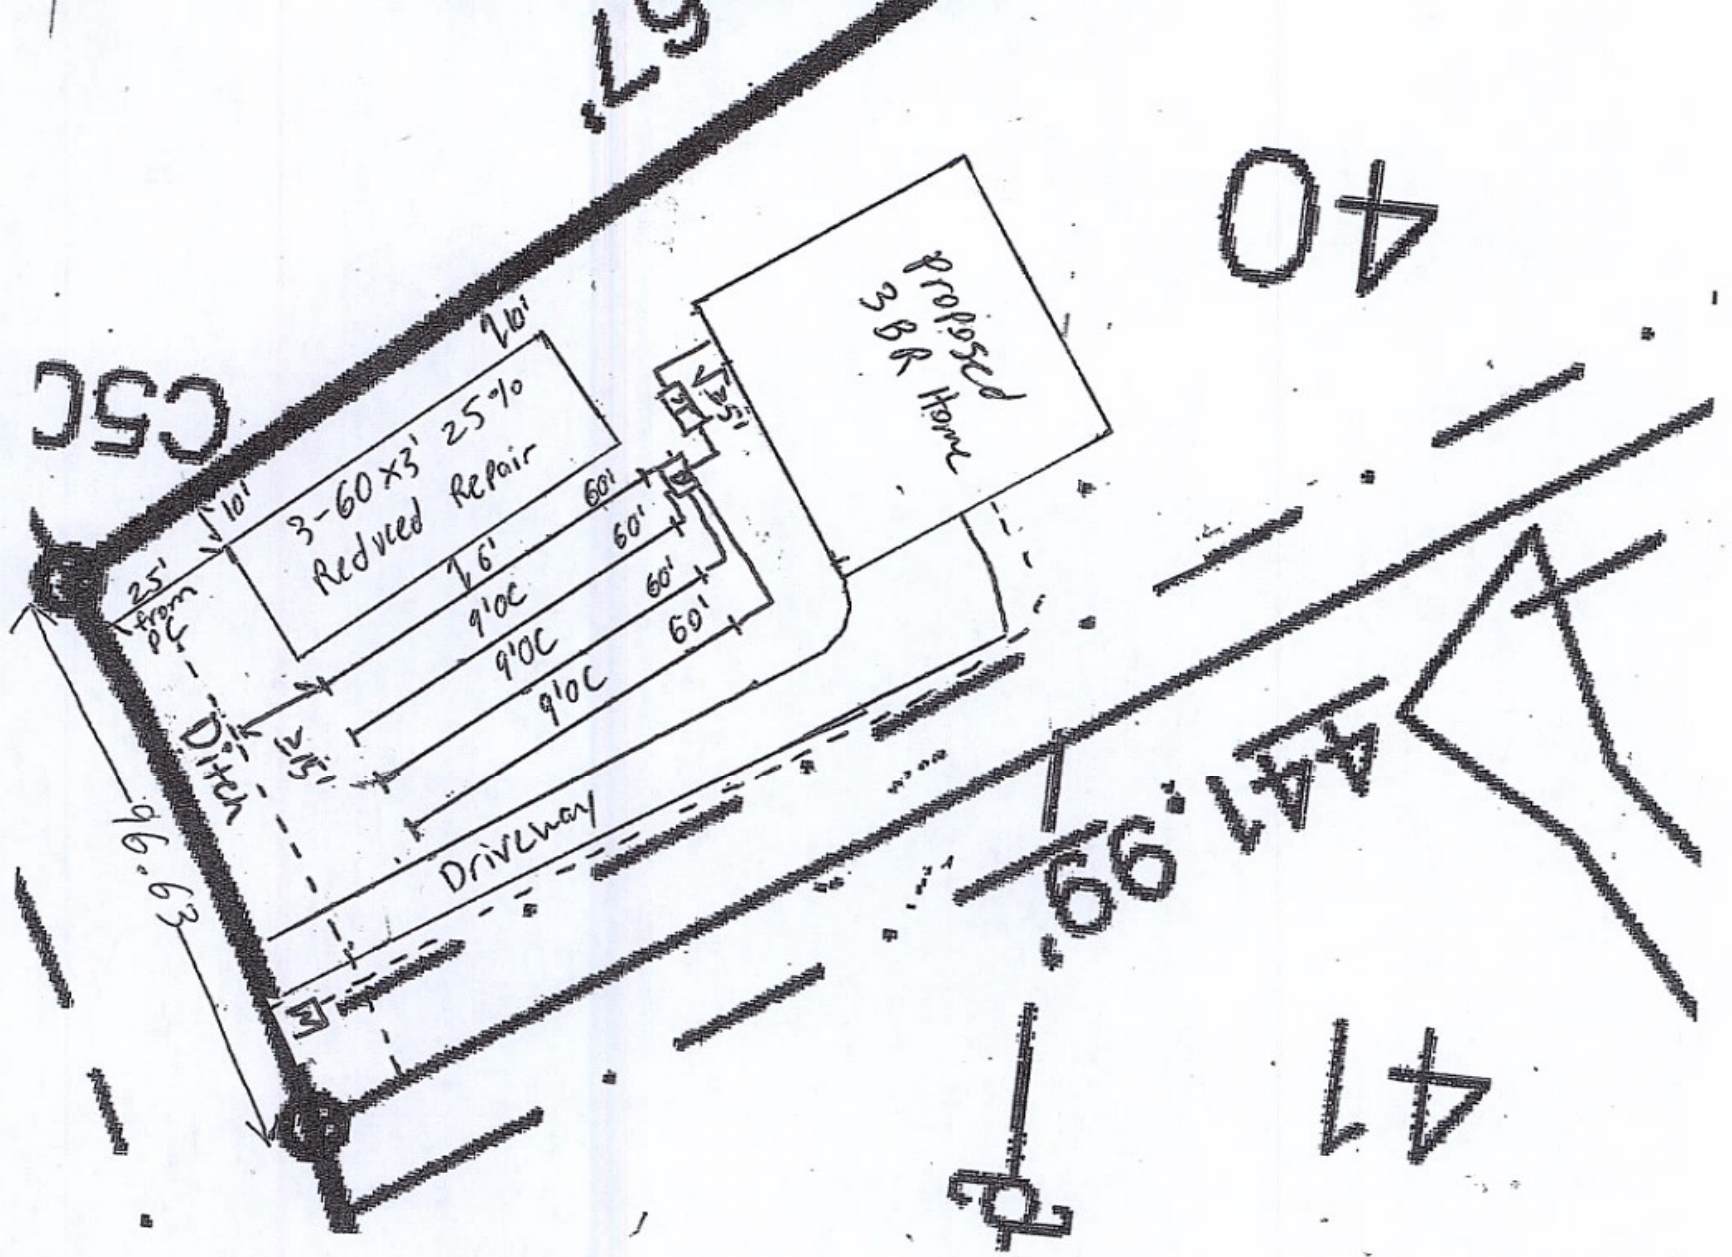 67'
40
C5C
Proposed
3 BR Home
10'
10'
3-60x3' 25%
Reduced Repair
≥5'
25'
from
PC
6'
60'
60'
60'
60'
9'OC
9'OC
9'OC
Ditch
≥15'
Driveway
96.63
M
99.
441
41